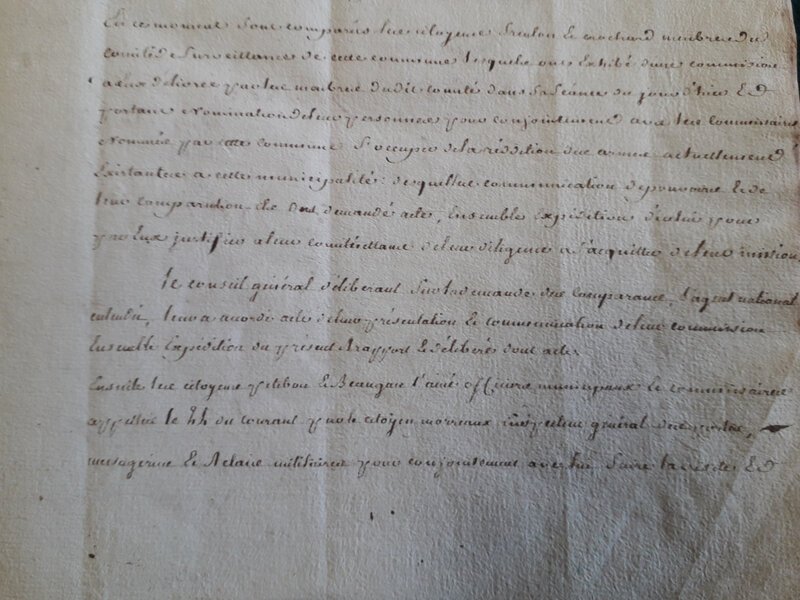 En ce moment sont comparus les citoyens et crochard membres du
comité de Surveillance de cette commune lesquels ont Exhibé d'une commission
a Eux délivrée par les membres dudit comité dans sa séance du jour d'hier Et
portant Nomination de leurs personnes pour conjointement avec les commissaires
Nommés par cette commune S'occuper de la reddition des armes actuellement
Existantes a cette municipalité: desquelles communication de pouvoirs Et de
leur comparution ils ont demandé acte, Ensemble Expédition d'icelui pour
par Eux justifier a leur comité de leur diligence a S'acquitter de leur mission
le conseil général délibérant Sur la demande des comparants, L'agent national
entendu, leur a accordé acte de leur présentation Et communication de leur commission
Ensemble Expédition du présent Rapport Et délibérés dont acte.
Ensuite les citoyens petibon Et Beaugau l'ainé officiers municipaux Et commissaires
appellés le 44 du courant par le citoyen moreaux inspecteur général des postes,
messageries Et Relais militaires pour conjointement avec lui faire la visite Et